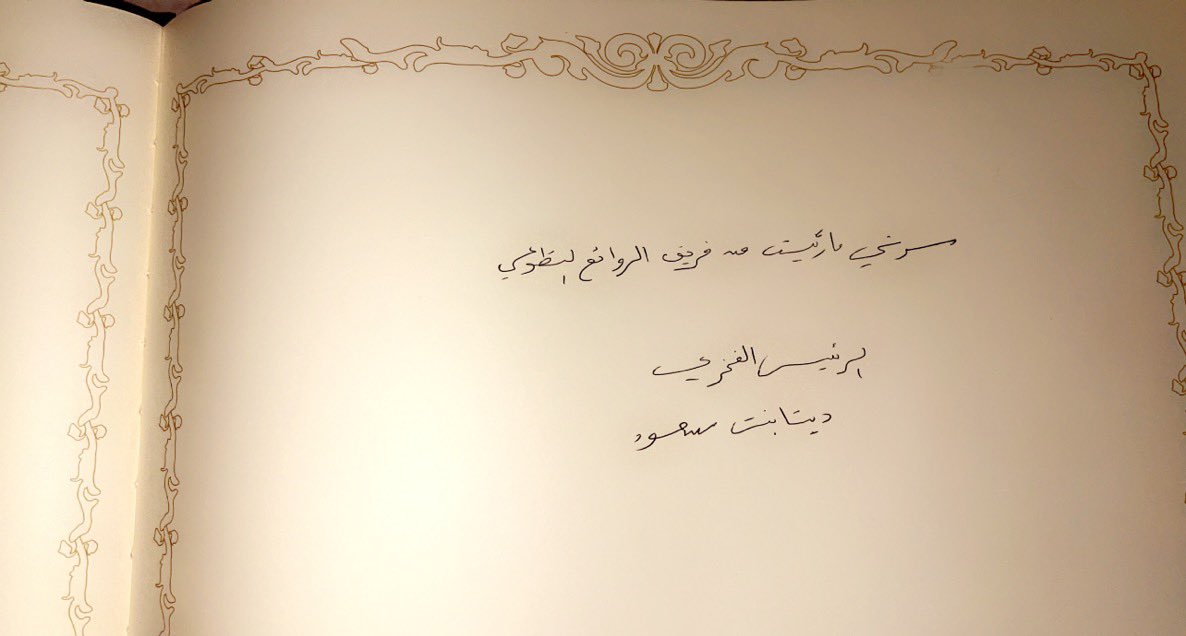 سرني ما رئيت من فريق الروائع التطوعي
الرئيس الفخري
ديتا بنت سعود